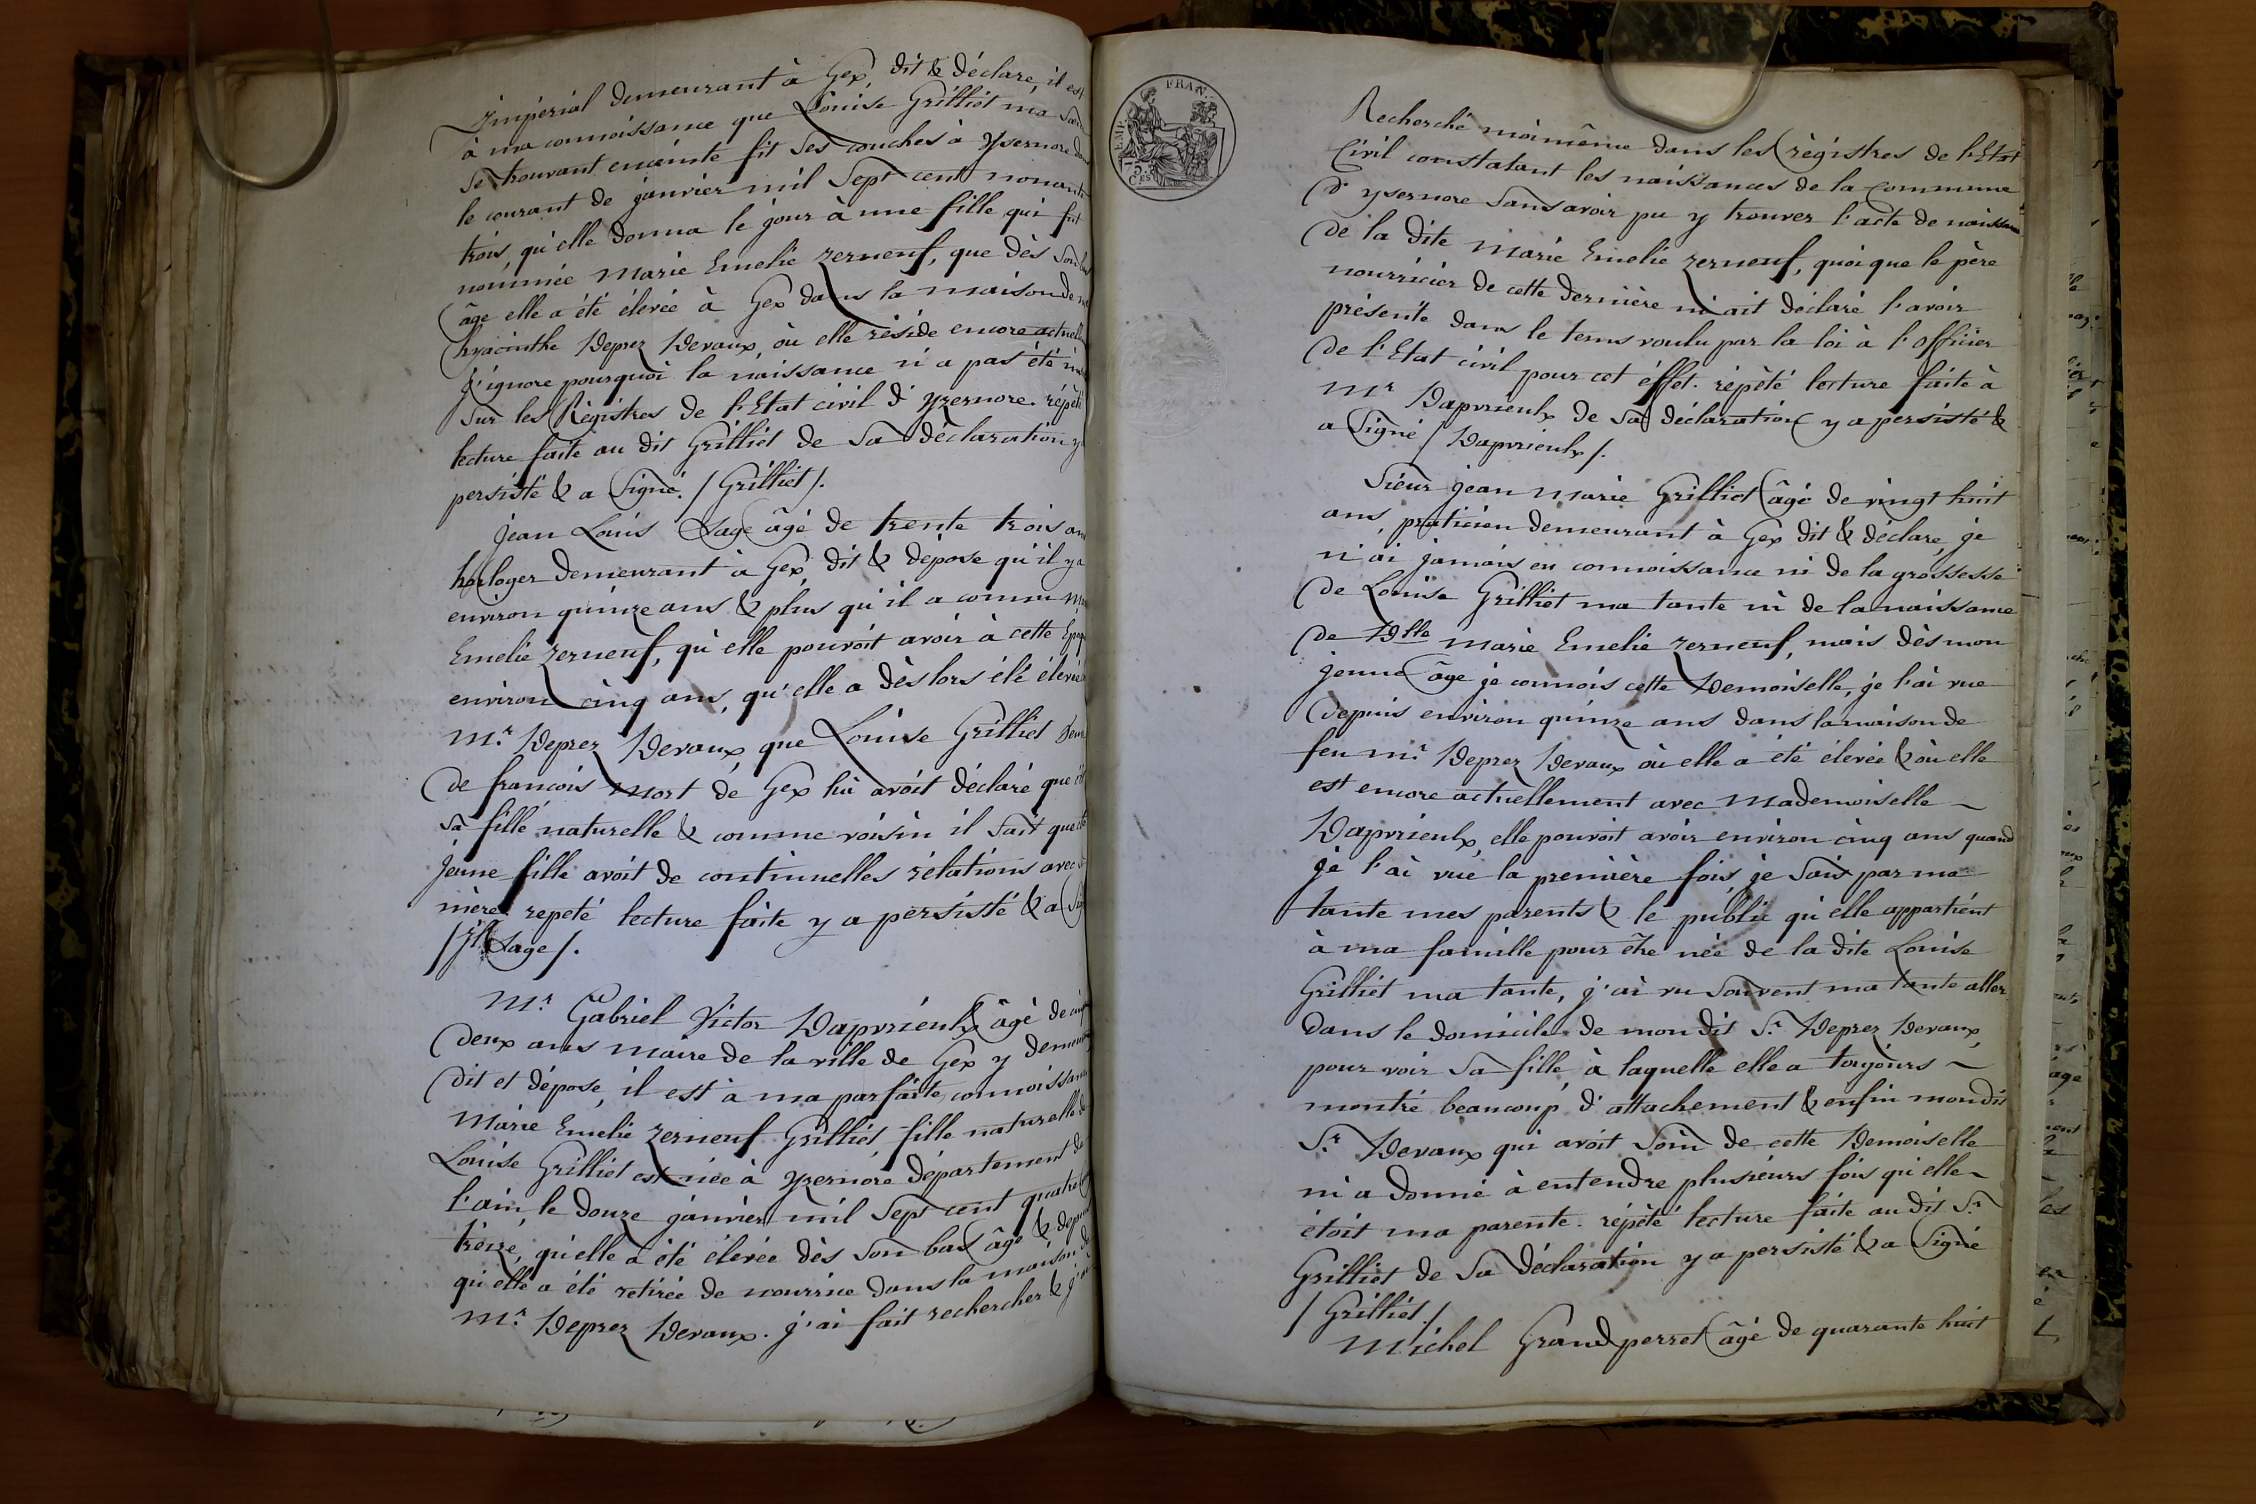 Impérial demeurant à Gex, dit & déclare, il est
à ma connoissance que Louise Grilliet ma Sœur
Se trouvant enceinte fit Ses couches à Ysernore dans
le courant de janvier mil Sept cent nonante
trois, qu'elle donna le jour à une fille qui fut
nommée Marie Emelie zerneuf, que dès Son bas
âge elle a été élevée à Gex dans la maison de
hyacinthe Deprez Devaux, où elle réside encore actuellem
J'ignore pourquoi la naissance n'a pas été
Sur les Régistres de l'Etat civil d'yzernore. répété
lecture faite au dit Grilliet de Sa déclaration y a
persisté & a Signé. / Grilliet /.
Jean Louis Lage âgé de trente trois ans
horloger demeurant à Gex, dit & dépose qu'il y a
environ quinze ans & plus qu'il a connu Marie
Emelie zerneuf, qu'elle pouvoit avoir à cette Epoque
environ cinq ans, qu'elle a dès lors été élevée
Mr. Deprez Devaux, que Louise Grilliet
de françois Mort de Gex lui avoit déclaré que
Sa fille naturelle & comme voisin il Sait que
jeune fille avoit de continuelles rélations avec
mère. repeté lecture faite y a persisté & a Sig
/ Jl. Lage /.
Mr. Gabriel Victor Dapvrieulx âgé de cinq
deux ans Maire de la ville de Gex y demeur
dit et dépose, il est à ma parfaite connoissance
Marie Emelie zerneuf Grilliet fille naturelle de
Louise Grilliet est née à yzernore département de
l'ain, le douze janvier mil Sept cent quatre
treize, qu'elle a été élevée dès Son bas âge & depuis
qu'elle a été retirée de nourrice dans la maison de
Mr. Deprez Devaux. j'ai fait rechercher & j'ai
FRAN.
EMP.
75 Ces
Recherché moimême dans les régistres de l'Etat
Civil constatant les naissances de la Commune
d'ysernore Sans avoir pu y trouver l'acte de naissance
de la dite Marie Emelie zerneuf, quoique le père
nourricier de cette dernière m'ait déclaré l'avoir
présenté dans le tems voulu par la loi à l'officier
de l'Etat civil pour cet éffet. répèté lecture faite à
Mr. Dapvrieulx de Sa déclaration y a persisté &
a Signé / Dapvrieulx /.
Sieur Jean Marie Grilliet âgé de vingt huit
ans, praticien demeurant à Gex dit & déclare, je
n'ai jamais eu connoissance ni de la grossesse
de Louise Grilliet ma tante ni de la naissance
de Dlle Marie Emelie zerneuf, mais dès mon
jeune âge je connois cette Demoiselle, je l'ai vue
depuis environ quinze ans dans la maison de
feu Mr. Deprez Devaux où elle a été élevée & où elle
est encore actuellement avec Mademoiselle
Dapvrieulx, elle pouvoit avoir environ cinq ans quand
je l'ai vue la première fois, je Sais par ma
tante mes parents & le public qu'elle appartient
à ma famille pour être née de la dite Louise
Grilliet ma tante, j'ai vu Souvent ma tante aller
dans le domicile de mon dit Sr. Deprez Devaux,
pour voir Sa fille, à laquelle elle a toujours
montré beaucoup d'attachement & enfin mon dit
Sr. Devaux qui avoit Soin de cette Demoiselle
m'a donné à entendre plusieurs fois qu'elle
étoit ma parente. répèté lecture faite au dit Sr.
Grilliet de Sa déclaration y a persisté & a Signé
/ Grilliet /.
Michel Grandperret âgé de quarante huit